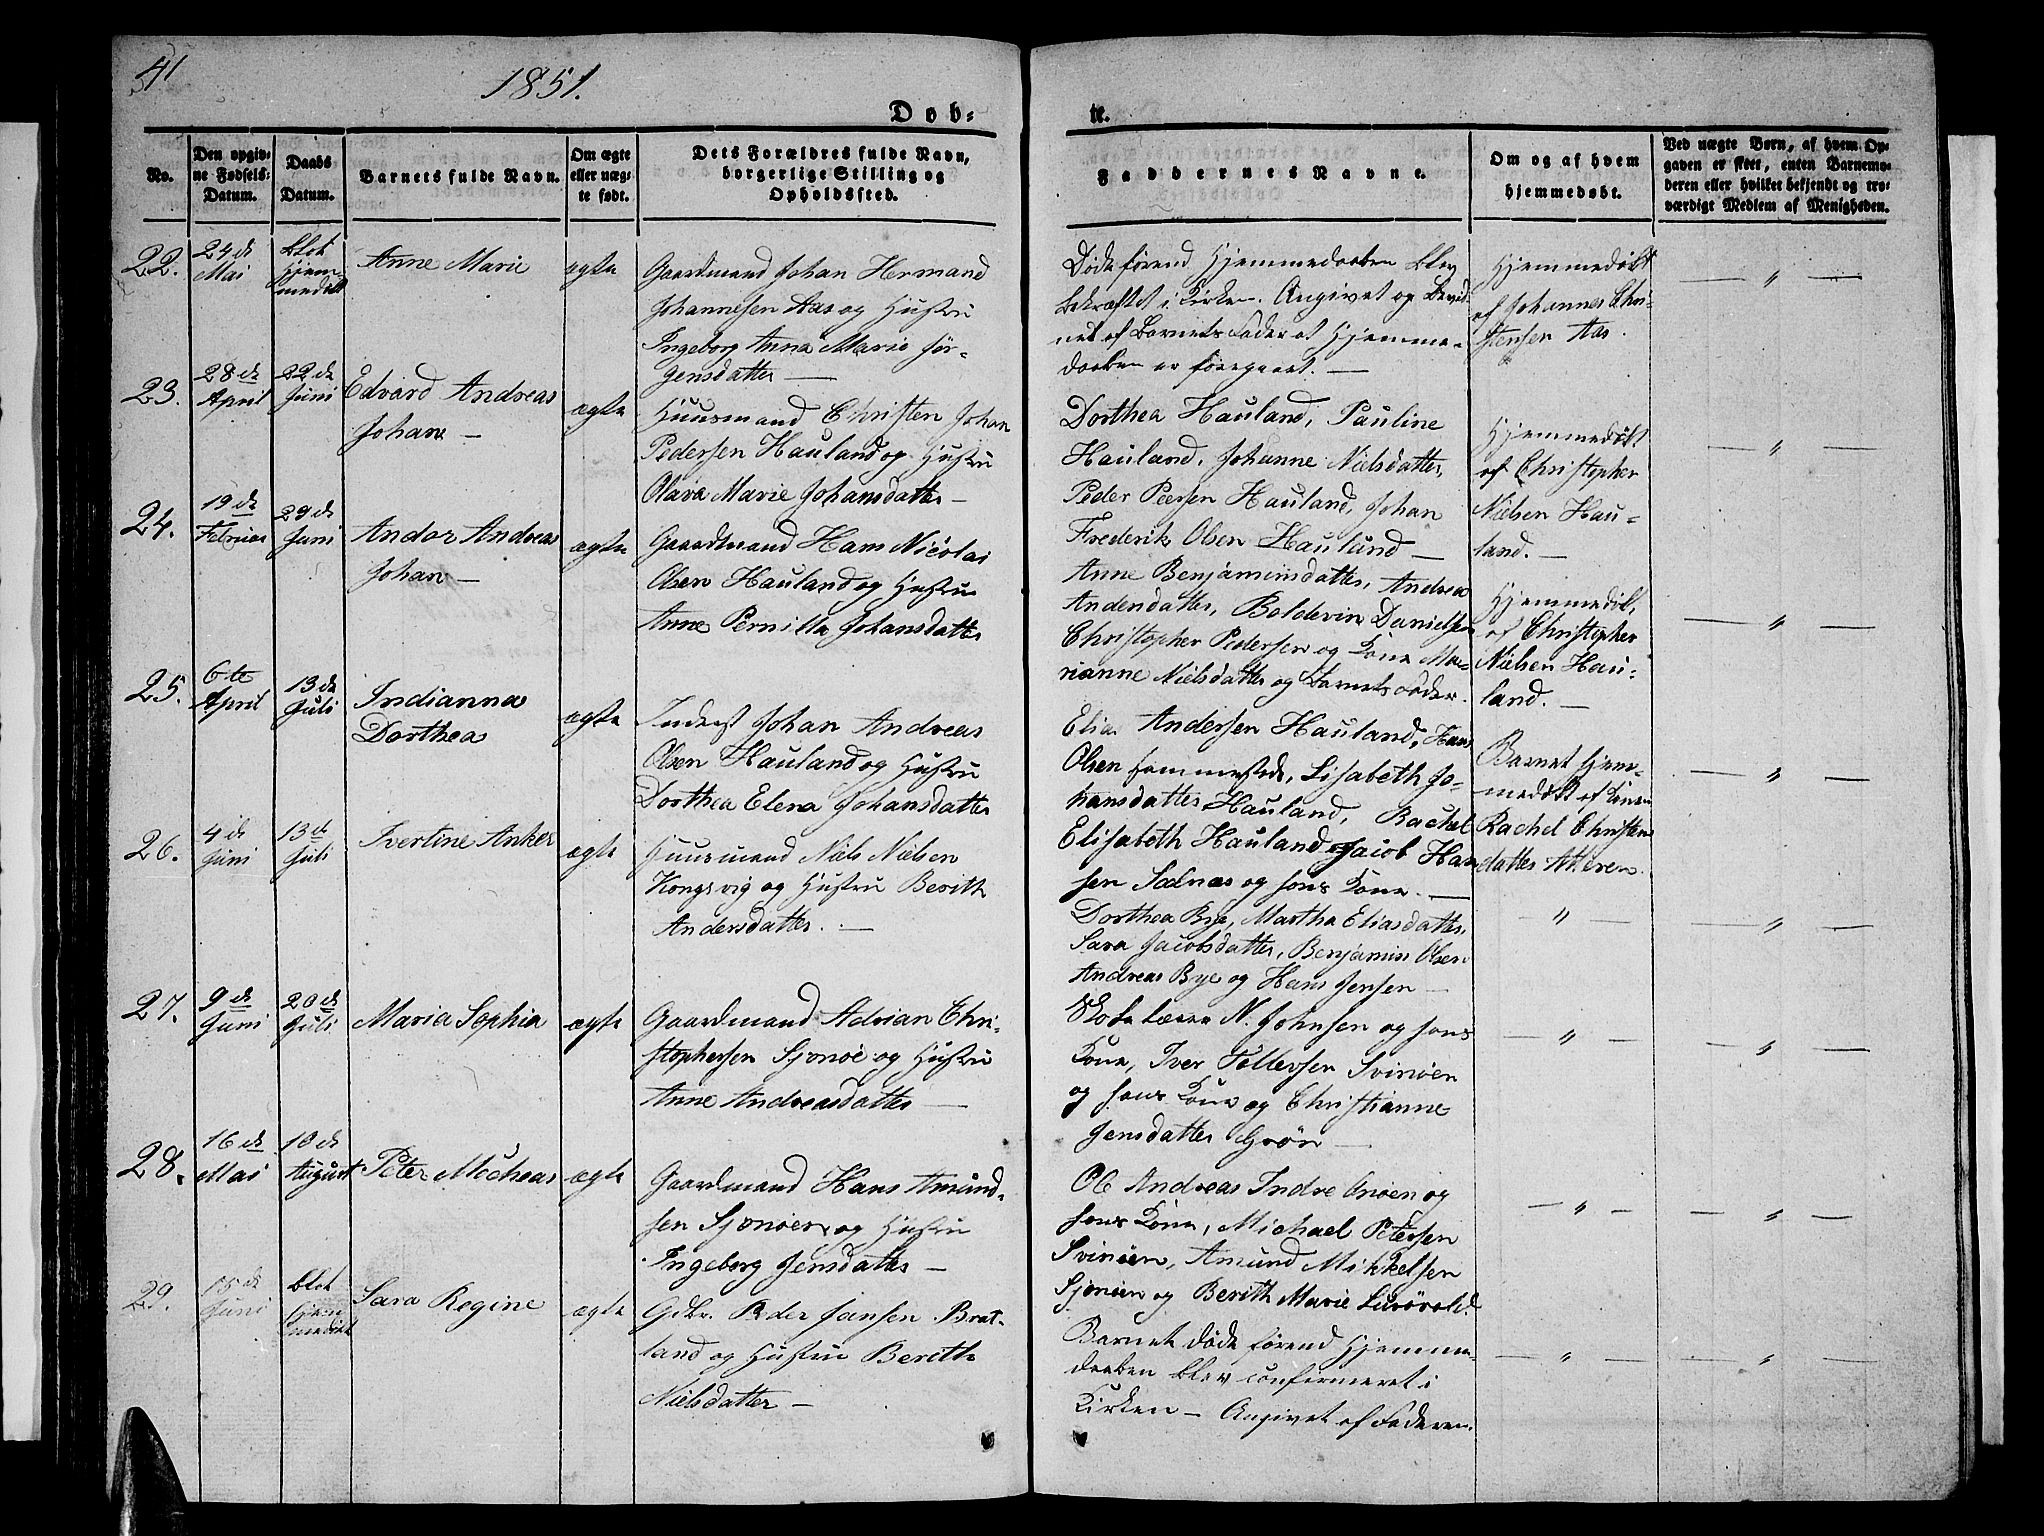 41
1851.
Døb-
te.
No.
Den opgiv-
ne Fødsels-
Datum.
Daabs
Datum.
Barnets fulde Navn.
Om ægte
eller uæg-
te født.
Dets Forældres fulde Navn,
borgerlige Stilling og
Opholdssted.
Faddernes Navne.
Om og af hvem
hjemmedøbt.
Ved uægte Børn, af hvem Op-
gaven er skeet, enten Barnemo-
deren eller hvilket bekjendt og tro-
værdigt Medlem af Menigheden.
22.
24de
Mai
blot
hjem-
medøbt
Anne Marie
ægte
Gaardmand Johan Hermand
Johannesen Aas og Hustru
Ingeborg Anna Marie Jør-
gensdatter —
Døde førend Hjemmedaaben blev
bekræftet i Kirken. Angivet og bevid-
net af Barnets Fader at Hjemme-
daaben er foregaaet. —
Hjemmedøbt
af Johannes Chri-
stensen Aas.
— " —
23.
28de
April
22de
Juni
Edvard Andreas
Johan —
ægte
Huusmand Christen Johan
Pedersen Hauland og Hustru
Olava Marie Johansdatter —
Dorthea Hauland, Pauline
Hauland, Johanne Nielsdatter,
Peder Peersen Hauland, Johan
Frederik Olsen Hauland —
Hjemmedøbt
af Christopher
Nielsen Hau-
land. —
— " —
24.
19de
Februar
29de
Juni
Andor Andreas
Johan —
ægte
Gaardmand Hans Nicolai
Olsen Hauland og Hustru
Anne Pernilla Johansdatter
Anne Benjaminsdatter, Andrea
Andersdatter, Boldevin Danielsen
Christopher Pedersen og Kone Ma-
rianne Nielsdatter og Barnets Fader.
Hjemmedøbt,
af Christopher
Nielsen Hau-
land. —
— " —
25.
6te
April
13de
Juli
Indianna
Dorthea
ægte
Inderst Johan Andreas
Olsen Hauland og Hustru
Dorthea Elena Johansdatter
Elias Andersen Hauland, Hans
Olsen Hammerstrde, Lisabeth Jo-
hansdatter Hauland, Rachel
Elisabeth Hauland, Jacob Han-
sen Selnæs og hans Kone. —
Barnet hjem-
medøbt af Konen
Rachel Christens
datter Atteren.
— " —
26.
4de
Juni
13de
Juli
Ivertine Anker
ægte
Huusmand Niels Nielsen
Kongsvig og Hustru Berith
Andersdatter. —
Dorthea Bye, Martha Eliasdatter,
Sara Jacobsdatter, Benjamin Olsen
Andreas Bye og Hans Jensen —
— " —
— " —
27.
9de
Juni
20de
Juli
Maria Sophia
ægte
Gaardmand Adrian Chri-
stophersen Sjonøe og Hustru
Anne Andreasdatter —
N. Johnsen og hans
Kone, Iver Tollefsen Svinøen
og hans Kone og Christianne
Jensdatter Grøn —
— " —
— " —
28.
16de
Mai
10de
August
Peter Micheas
ægte
Gaardmand Hans Amund-
sen Sjonøen og Hustru
Ingeborg Jensdatter —
Ole Andreas Indre Onøen og
hans Kone, Michael Petersen
Svinøen, Amund Mikkelsen
Sjonøen og Berith Marie Lurøvold.
— " —
— " —
29.
15de
Juni
blot
hjem
medøbt
Sara Regine
ægte
Gdbr. Peder Jansen Brat-
land og Hustru Berith
Nielsdatter —
Barnet døde førend Hjemme-
daaben blev confirmeret i
Kirken — Angivet af Faderen.
— " —
— " —